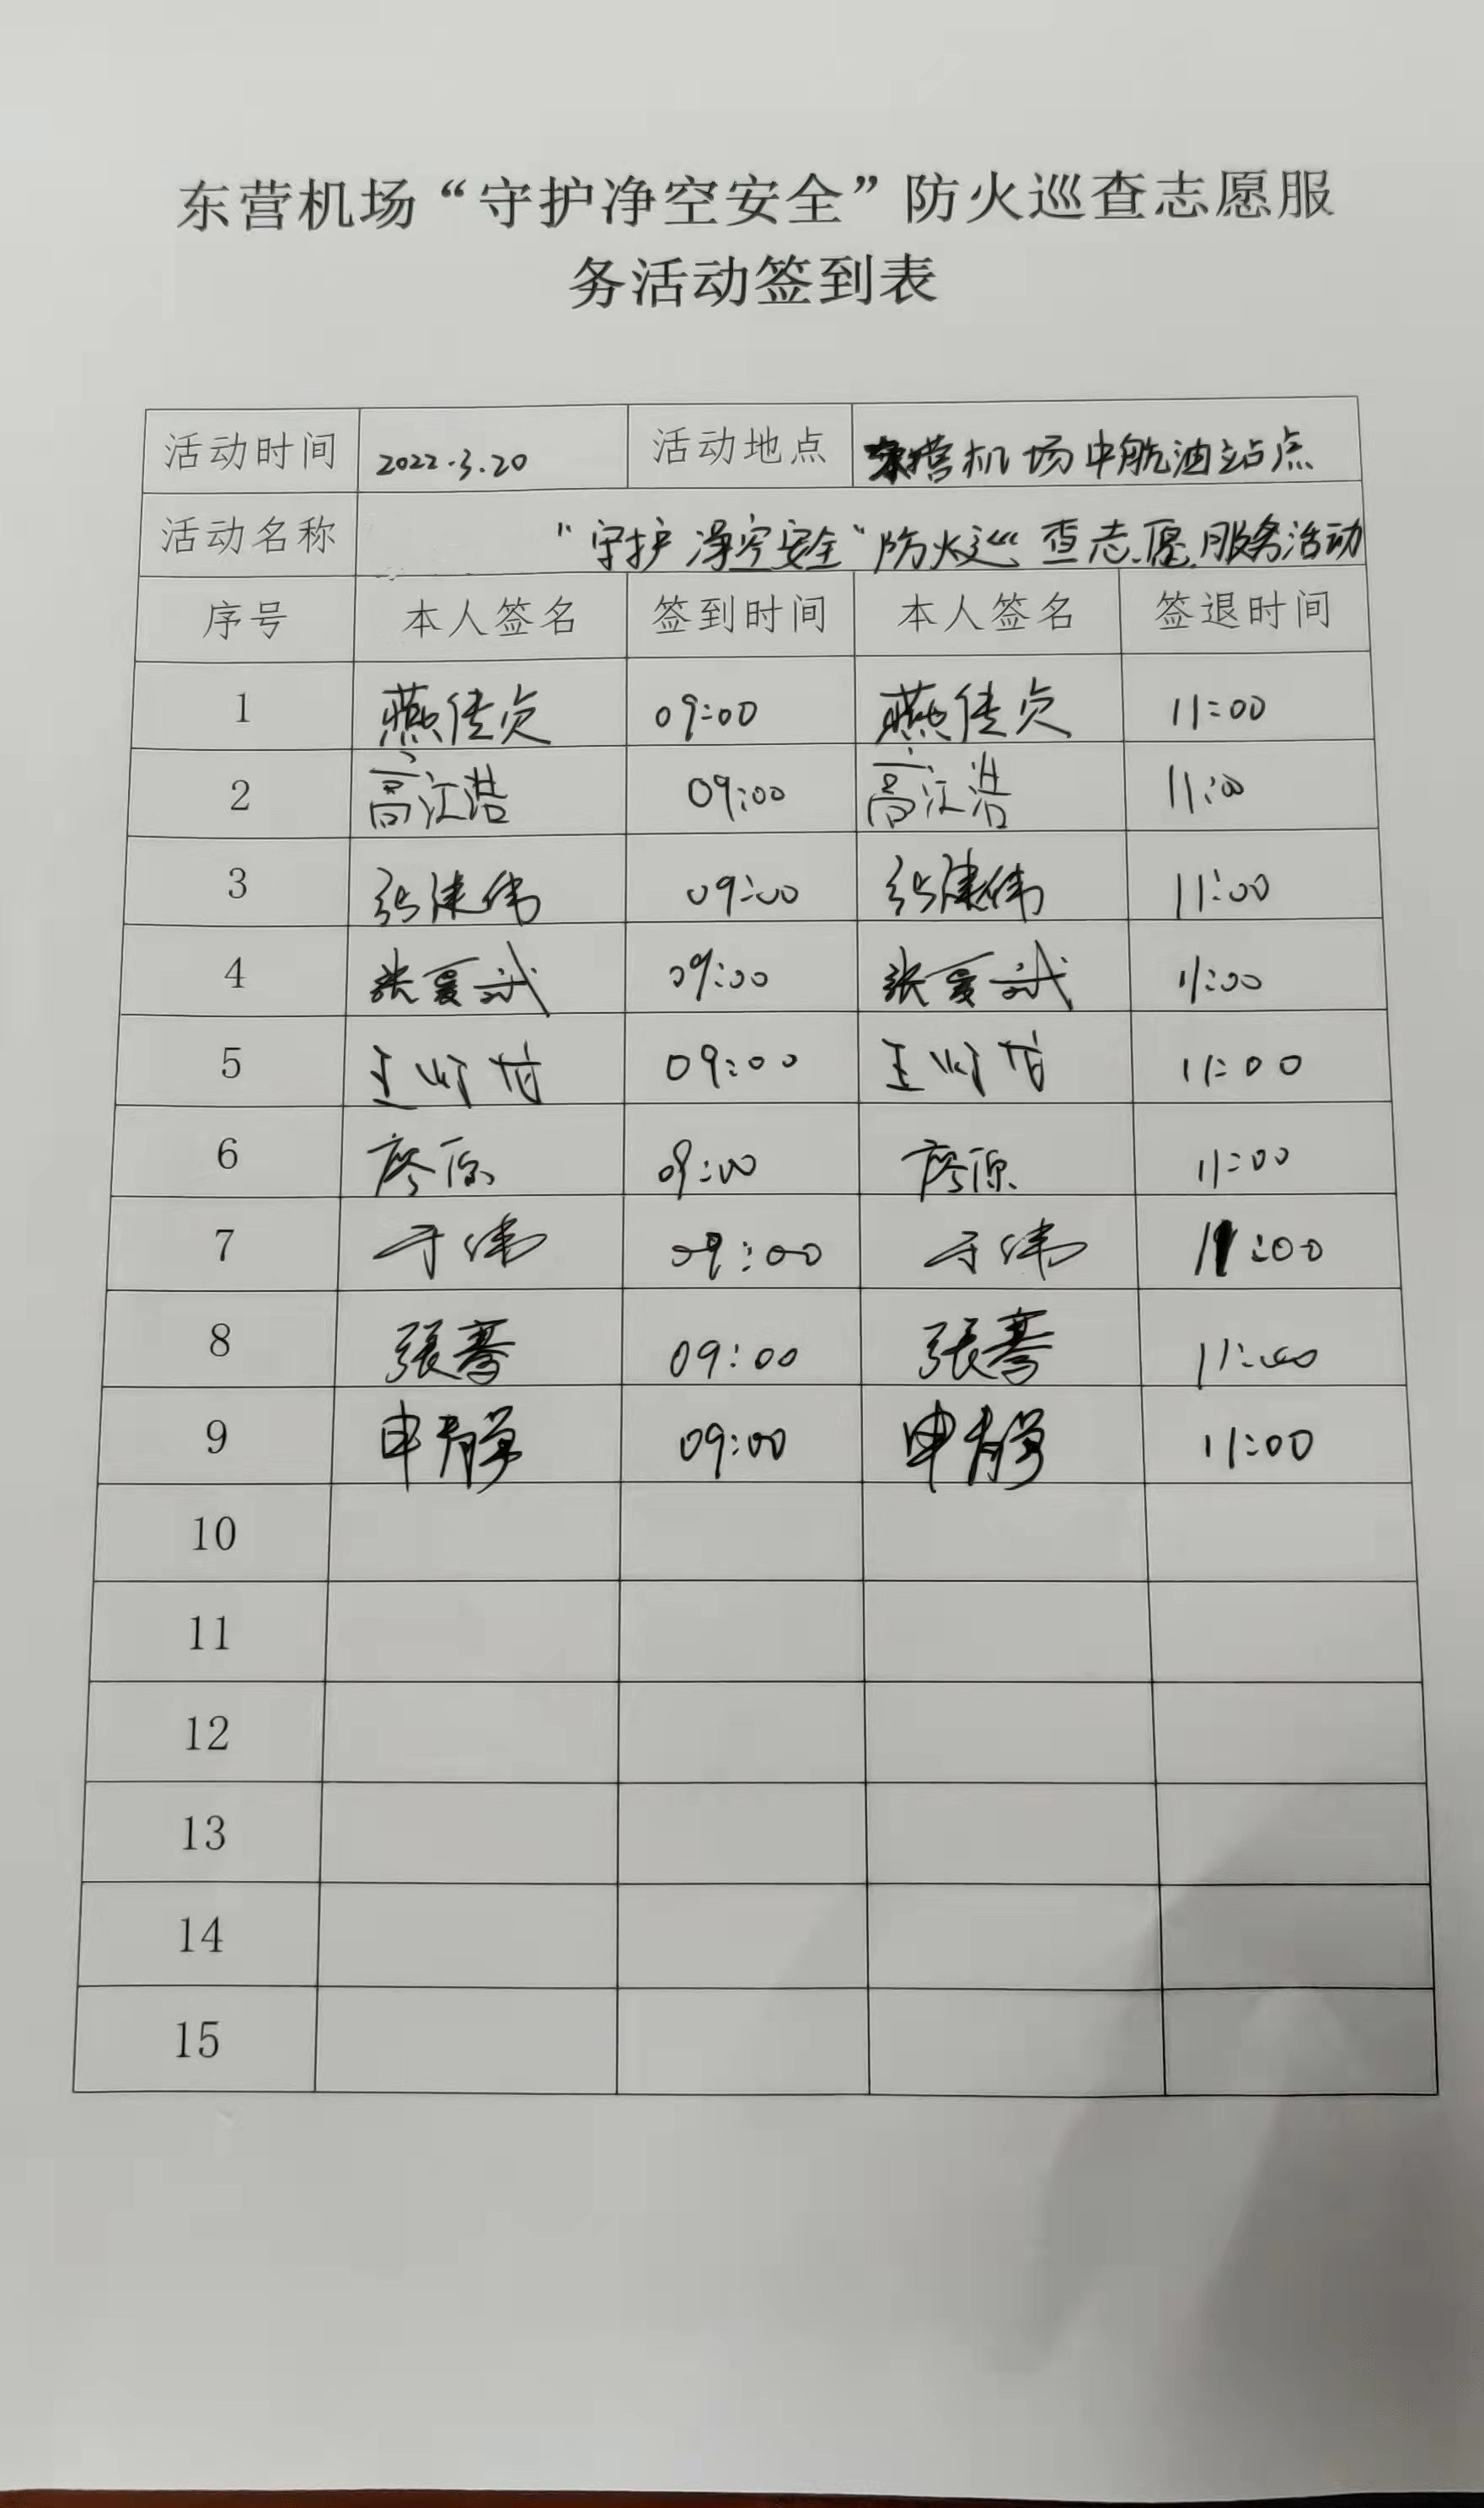 东营机场“守护净空安全”防火巡查志愿服
务活动签到表
活动时间 2022.3.20 活动地点 东营机场中航油站点
活动名称 “守护净空安全“防火巡查志愿服务活动
序号 本人签名 签到时间 本人签名 签退时间
1 燕佳贞 09:00 燕佳贞 11:00
2 高江浩 09:00 高江浩 11:00
3 张建伟 09:00 张建伟 11:00
4 张夏斌 09:00 张夏斌 11:00
5 王 09:00 王 11:00
6 廖原 09:00 廖原 11:00
7 于伟 09:00 于伟 11:00
8 張骞 09:00 張骞 11:00
9 申 09:00 申 11:00
10
11
12
13
14
15